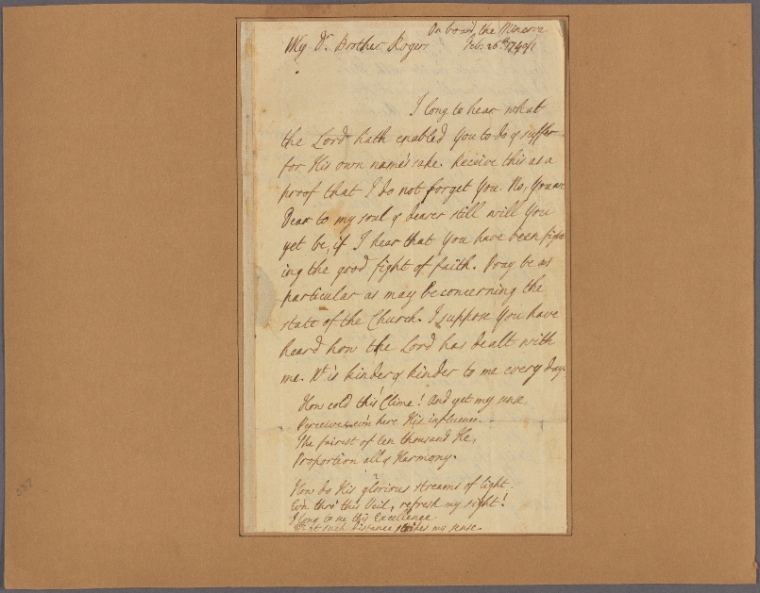 On board the Minerva
My Dr. Brother Rogers Feb. 26th 1740/1
I long to hear what
the Lord hath enabled You to do & suffer
for His own name's sake. Receive this as a
proof that I do not forget You. No, You are
Dear to my soul & dearer still will You
yet be, if I hear that You have been fight
ing the good fight of faith. Pray be as
particular as may be concerning the
state of the Church. I suppose You have
heard how the Lord has dealt with
me. He is kinder & kinder to me every day.
How cold this Clime! And yet my sense
Perceives even here His influence.
The fairest of ten thousand He,
Proportion all & Harmony.
How do His glorious streams of light
Ev'n thro' this Veil, refresh my sight!
I long to see this Excellence
at such distance strikes my sense.